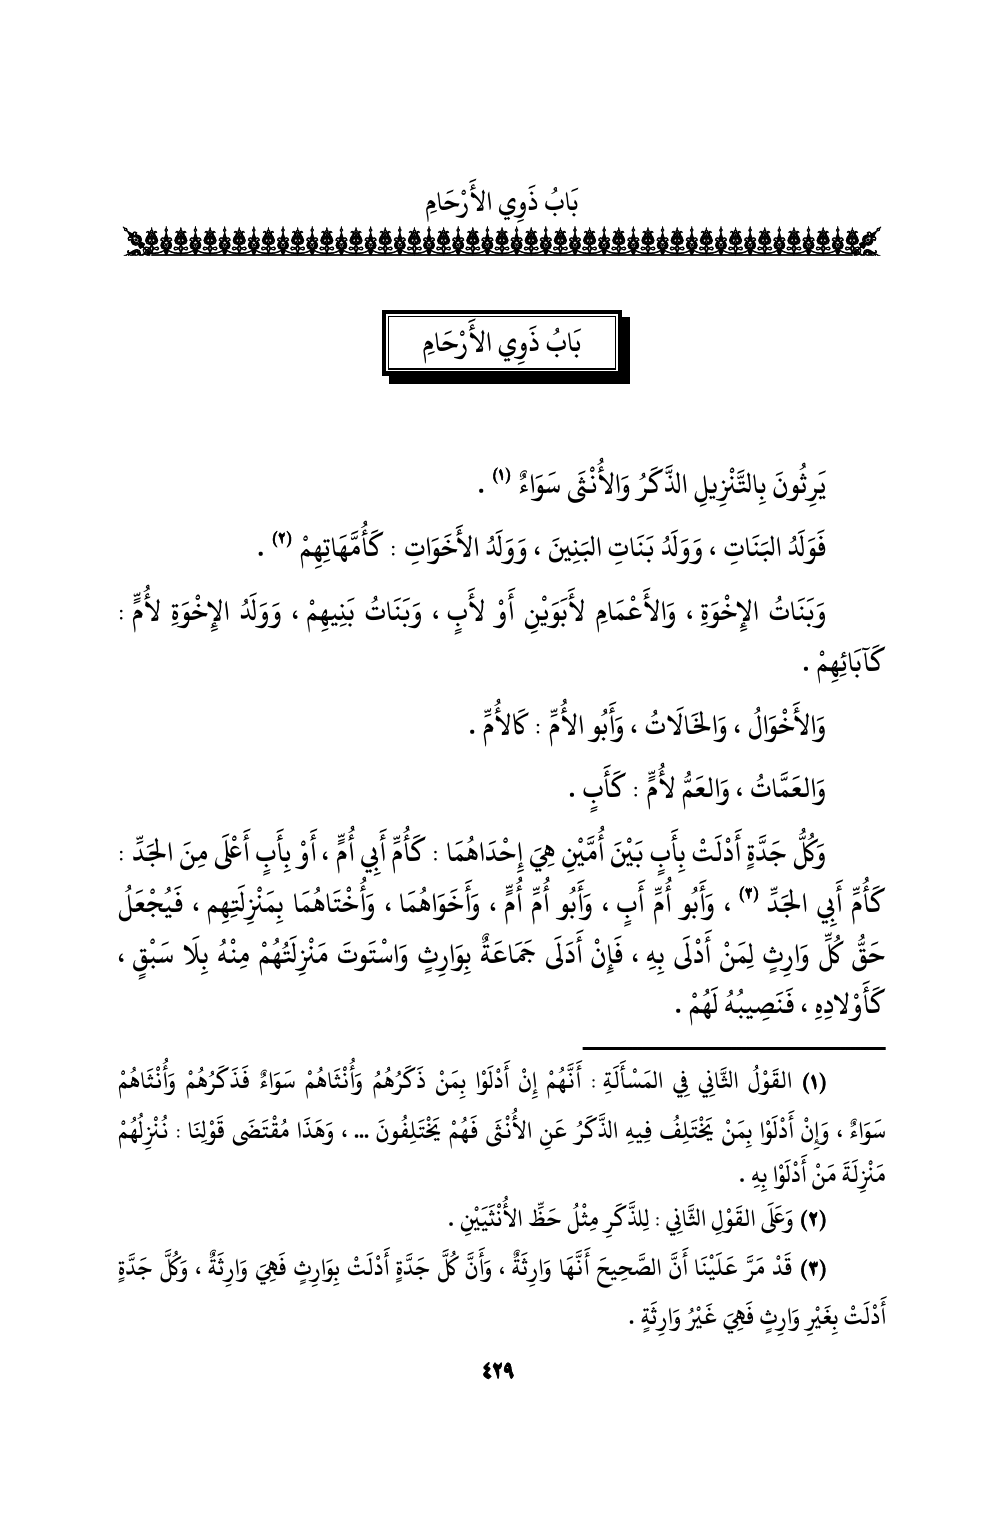 بَابُ ذَوِي الأَرْحَامِ
بَابُ ذَوِي الأَرْحَامِ
يَرِثُونَ بِالتَّنْزِيلِ الذَّكَرُ وَالأُنْثَى سَوَاءٌ (١) .
فَوَلَدُ البَنَاتِ ، وَوَلَدُ بَنَاتِ البَنِينَ ، وَوَلَدُ الأَخَوَاتِ : كَأُمَّهَاتِهِمْ (٢) .
وَبَنَاتُ الإِخْوَةِ ، وَالأَعْمَامِ لأَبَوَيْنِ أَوْ لأَبٍ ، وَبَنَاتُ بَنِيهِمْ ، وَوَلَدُ الإِخْوَةِ لأُمٍّ :
كَآبَائِهِمْ .
وَالأَخْوَالُ ، وَالخَالَاتُ ، وَأَبُو الأُمِّ : كَالأُمِّ .
وَالعَمَّاتُ ، وَالعَمُّ لأُمٍّ : كَأَبٍ .
وَكُلُّ جَدَّةٍ أَدْلَتْ بِأَبٍ بَيْنَ أُمَّيْنِ هِيَ إِحْدَاهُمَا : كَأُمِّ أَبِي أُمٍّ ، أَوْ بِأَبٍ أَعْلَى مِنَ الجَدِّ :
كَأُمِّ أَبِي الجَدِّ (٣) ، وَأَبُو أُمِّ أَبٍ ، وَأَبُو أُمِّ أُمٍّ ، وَأَخَوَاهُمَا ، وَأُخْتَاهُمَا بِمَنْزِلَتِهِم ، فَيُجْعَلُ
حَقُّ كُلِّ وَارِثٍ لِمَنْ أَدْلَى بِهِ ، فَإِنْ أَدَلَى جَمَاعَةٌ بِوَارِثٍ وَاسْتَوتَ مَنْزِلَتُهُمْ مِنْهُ بِلَا سَبْقٍ ،
كَأَوْلادِهِ ، فَنَصِيبُهُ لَهُمْ .
(١) القَوْلُ الثَّانِي فِي المَسْأَلَةِ : أَنَّهُمْ إِنْ أَدْلَوْا بِمَنْ ذَكَرُهُمُ وَأُنْثَاهُمْ سَوَاءٌ فَذَكَرُهُمْ وَأُنْثَاهُمْ
سَوَاءٌ ، وَإِنْ أَدْلَوْا بِمَنْ يَخْتَلِفُ فِيهِ الذَّكَرُ عَنِ الأُنْثَى فَهُمْ يَخْتَلِفُونَ ... ، وَهَذَا مُقْتَضَى قَوْلِنَا : نُنْزِلُهُمْ
مَنْزِلَةَ مَنْ أَدْلَوْا بِهِ .
(٢) وَعَلَى القَوْلِ الثَّانِي : لِلذَّكَرِ مِثْلُ حَظِّ الأُنْثَيَيْنِ .
(٣) قَدْ مَرَّ عَلَيْنَا أَنَّ الصَّحِيحَ أَنَّهَا وَارِثَةٌ ، وَأَنَّ كُلَّ جَدَّةٍ أَدْلَتْ بِوَارِثٍ فَهِيَ وَارِثَةٌ ، وَكُلَّ جَدَّةٍ
أَدْلَتْ بِغَيْرِ وَارِثٍ فَهِيَ غَيْرُ وَارِثَةٍ .
٤٢٩